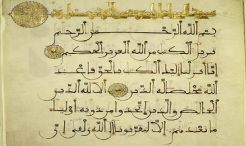 بسم الله الرحمن الرحيم
تنزيل الكتب من الله العزيز الحكيم
انا انزلنا اليك الكتب بالحق فاعبد
الله مخلصا له الدين الا لله الدين
الخالص والذين اتخذوا من دونه اوليا
ما نعبدهم الا ليقربونا الى الله زلفى